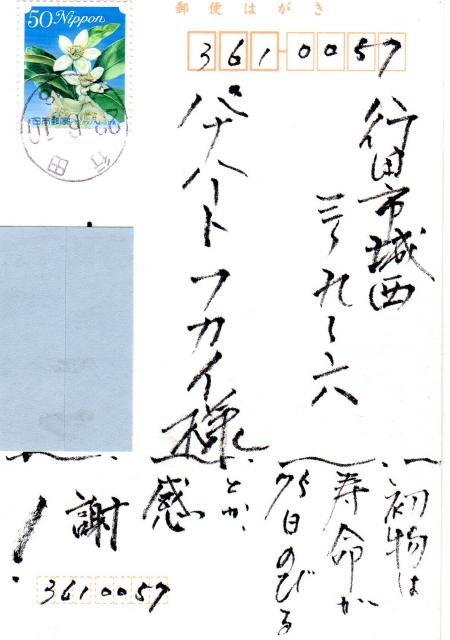 50 Nippon
日本郵便
行田
郵便はがき
361-0057
行田市城西
三ー九ー六
パナハート フカイ様
初物は
寿命が
75日のびる
とか、
感
謝
!
3610057